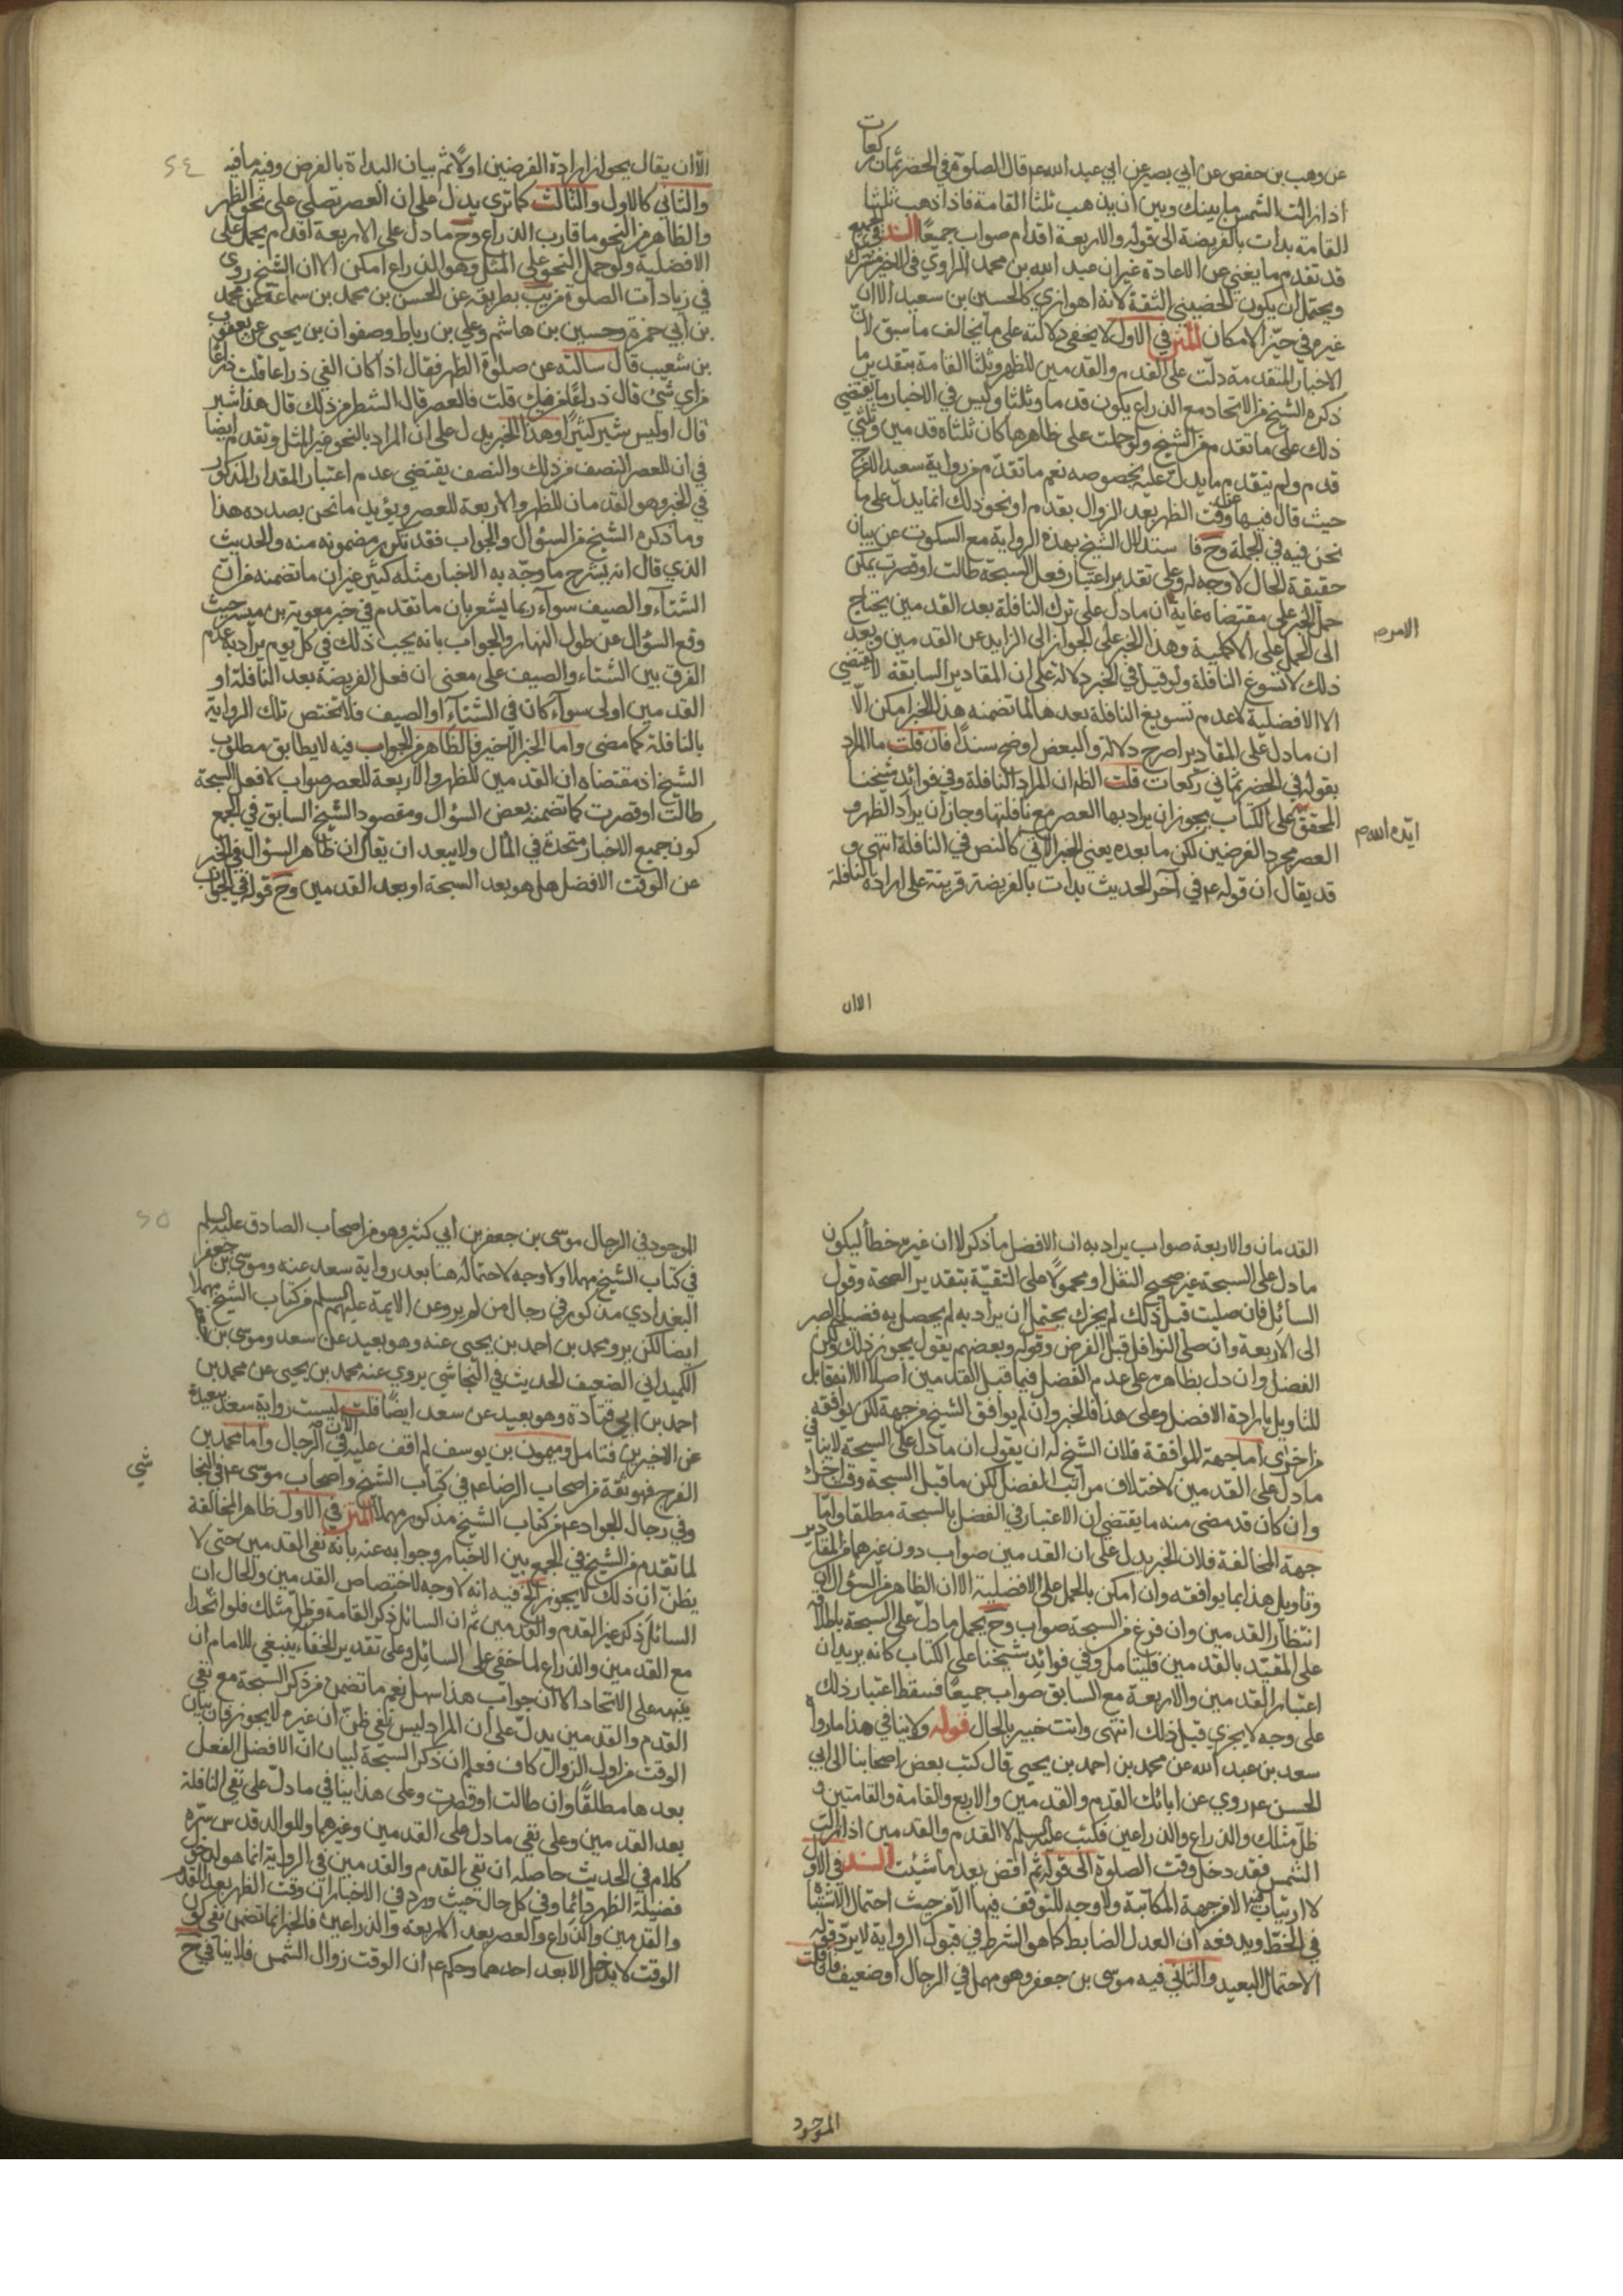 عن وهب بن حفص عن ابي بصير عن ابي عبد الله عم قال الصلوة في الحضر ثمان ركعات
اذا زالت الشمس ما بينك وبين ان يذهب ثلثا القامة فاذا ذهب ثلثا
القامة بدات بالفريضة الى قوله والاربعة اقدام صواب جميعا السند في الجميع
قد تقدم ما يغني عن الاعادة غير ان عبد الله بن محمد الراوي في الاخير مشترك
ويحتمل ان يكون الحضيني الثقة لانه اهوازي كالحسين بن سعيد الا ان
غيره في حيّز الامكان المتن في الاول لا يخفى دلالته على ما يخالف ما سبق لانّ
الاخبار المتقدمة دلّت على القدم والقدمين للظهر وثلثا القامة بتقدير ما
ذكره الشيخ من الاتحاد مع الذراع يكون قدما وثلثا وليس في الاخبار ما يقتضي
ذلك على ما تقدم من الشيخ ولو حملت على ظاهرها كان ثلثاه قدمين وثلثي
قدم ولم يتقدم ما يدل عليه بخصوصه نعم ما تقدّم من رواية سعيد الاعرج
حيث قال فيها عن وقت الظهر بعد الزوال بقدم او نحو ذلك انما يدل على ما
نحن فيه في الجملة وح فاستدلال الشيخ بهذه الرواية مع السكوت عن بيان
حقيقة الحال لا وجه له وعلى تقدير اعتبار فعل السبحة طالت او قصرت يمكن
حمل الخبر على مقتضاه غاية الامر ان ما دل على ترك النافلة بعد القدمين يحتاج
الى الحمل على الاكملية وهذا الخبر على الجواز الى الزايد عن القدمين وبعد
ذلك لا تسوغ النافلة ولو قيل في الخبر دلالة على ان المقادير السابقة لا تقتضي
الا الافضلية لا عدم تسويغ النافلة بعدها لما تضمنه هذا الخبر امكن الّا
ان ما دل على المقادير اصرح دلالة والبعض اوضح سندا فان قلت ما المراد
بقوله في الحضر ثماني ركعات قلت الظ ان المراد النافلة وفي فوائد شيخنا
المحقق ايّده الله على الكتاب يجوز ان يراد بها العصر مع نافلتها وجاز ان يراد الظهر و
العصر مجرد الفرضين لكن ما بعده يعني الخبر الاتي كالنص في النافلة انتهى و
قد يقال ان قوله عم في آخر الحديث بدات بالفريضة قرينة على ارادة النافلة
الا ان
الّا ان يقال يجواز ارادة الفرضين اولا ثم بيان البداة بالفرض وفيه ما فيه
٢٤
والثاني كالاول والثالث كما ترى يدل على ان العصر تصلي على نحو الظهر
والظاهر من النحو ما قارب الذراع وح ما دل على الاربعة اقدام يحمل على
الافضلية ولو حمل النحو على المثل وهو الذراع امكن الا ان الشيخ روى
في زيادات الصلوة قريب بطريقه عن الحسن بن محمد بن سماعة عن محمد
بن ابي حمزة وحسين بن هاشم وعلي بن رباط وصفوان بن يحيى عن يعقوب
بن شعيب قال سالته عن صلوة الظهر فقال اذا كان الفي ذراعا قلت ذراعا
من اي شئ قال ذراعا من فيئك قلت فالعصر قال الشطر من ذلك قال هذا شبر
قال اوليس شبر كثيرا وهذا الخبر يدل على ان المراد بالنحو غير المثل وتقدم ايضا
في ان للعصر النصف من ذلك والنصف يقتضي عدم اعتبار المقدار المذكور
في الخبر وهو القدمان للظهر والاربعة للعصر ويؤيد ما نحن بصدده هذا
وما ذكره الشيخ من السؤال والجواب فقد تكرر مضمونه منه والحديث
الذي قال انه يشرح ما وجّه به الاخبار مثله كثير غير ان ما تضمنه من ان
الشتاء والصيف سواء ربما يشعر بان ما تقدم في خبر معوية بن ميسرة حيث
وقع السؤال عن طول النهار والجواب بانه يجب ذلك في كل يوم يراد به عدم
الفرق بين الشتاء والصيف على معنى ان فعل الفريضة بعد النافلة او
القدمين اولى سواء كان في الشتاء او الصيف فلا تختص تلك الرواية
بالنافلة كما مضى واما الخبر الاخير فالظاهر من الجواب فيه لا يطابق مطلوب
الشيخ اذ مقتضاه ان القدمين للظهر والاربعة للعصر صواب لا فعل السبحة
طالت او قصرت كما تضمنه بعض السؤال ومقصود الشيخ السابق في الجمع
كون جميع الاخبار متحدة في المآل ولا يبعد ان يقال ان ظاهر السؤال في الخبر
عن الوقت الافضل هل هو بعد السبحة او بعد القدمين وح قوله في الجواب
القدمان والاربعة صواب يراد به ان الافضل ما ذكر لا ان غيره خطأ ليكون
ما دل على السبحة غير صحيح النقل او محمولا على التقيّة بتقدير الصحة وقول
السائل فان صليت قبل ذلك لم يجزك يحتمل ان يراد به لم يحصل به فضيلة الصبر
الى الاربعة وان صلى النوافل قبل الفرض وقوله وبعضهم يقول يجوز ذلك ولكن
الفضل وان دل بظاهره على عدم الفضل فيما قبل القدمين اصلا الا انه قابل
للتاويل بارادة الافضل وعلى هذا فالخبر وان لم يوافق الشيخ من جهة لكن يوافقه
من اخرى اما جهة الموافقة فلان الشيخ له ان يقول ان ما دل على السبحة لا ينافي
ما دل على القدمين لاختلاف مراتب الفضل لكن ما قبل السبحة وقت اخر
وان كان قد مضى منه ما يقتضي ان الاعتبار في الفضل بالسبحة مطلقا وامّا
جهة المخالفة فلان الخبر يدل على ان القدمين صواب دون غيرهما من المقادير
وتاويل هذا بما يوافقه وان امكن بالحمل على الافضلية الا ان الظاهر من السؤال ان
انتظار القدمين وان فرغ من السبحة صواب وح يحمل ما دلّ على السبحة باطلاقه
على المقيّد بالقدمين فليتامل وفي فوائد شيخنا على الكتاب كانه يريد ان
اعتبار القدمين والاربعة مع السابق صواب جميعا فسقط اعتبار ذلك
على وجه لا يجزي قبل ذلك انتهى وانت خبير بالحال قوله ولا ينافي هذا ما رواه
سعد بن عبد الله عن محمد بن احمد بن يحيى قال كتب بعض اصحابنا الى ابي
الحسن عم روي عن ابائك القدم والقدمين والاربع والقامة والقامتين و
ظل مثلك والذراع والذراعين فكتب عليه السلم لا القدم والقدمين اذا زالت
الشمس فقد دخل وقت الصلوة الى قوله ثم اقض بعد ما شئت السند في الاول
لا ارتياب فيه الا من جهة المكاتبة ولا وجه للتوقف فيها الا من حيث احتمال الاشتباه
في الخطّ ويدفعه ان العدل الضابط كما هو الشرط في قبول الرواية لا يرد قوله
الاحتمال البعيد والثاني فيه موسى بن جعفر وهو مهمل في الرجال او ضعيف فان قلت
الموجود
الموجود في الرجال موسى بن جعفر بن ابي كثير وهو من اصحاب الصادق عليه السلم
٢٥
في كتاب الشيخ مهملا ولا وجه لاحتماله هنا بعد رواية سعد عنه وموسى بن جعفر
البغدادي مذكور في رجال من لم يرو عن الايمة عليهم السلم من كتاب الشيخ مهملا
ايضا لكن يرو محمد بن احمد بن يحيى عنه وهو بعيد عن سعد وموسى بن جعفر
الكميداني الضعيف الحديث في النجاشي يروي عنه محمد بن يحيى عن محمد بن
احمد بن ابي قتادة وهو بعيد عن سعد ايضا قلت ليست رواية سعد بعيدة
عن الاخيرين فتامل وميمون بن يوسف لم اقف عليه الآن في الرجال واما محمد بن
الفرج فهو ثقة من اصحاب الرضا عم في كتاب الشيخ واصحاب موسى عم في النجاشي
وفي رجال الجواد عم من كتاب الشيخ مذكور مهملا المتن في الاول ظاهر المخالفة
لما تقدم من الشيخ في الجمع بين الاخبار وجوابه عنه بانه نفى القدمين حتى لا
يظن ان ذلك لا يجوز الخ فيه انه لا وجه لاختصاص القدمين والحال ان
السائل ذكر غير القدم والقدمين ثم ان السائل ذكر القامة وظل مثلك فلو اتحدا
مع القدمين والذراع لما خفي على السائل وعلى تقدير الخفاء ينبغي للامام ان
ينبهه على الاتحاد الا ان جواب هذا سهل نعم ما تضمن من ذكر السبحة مع نفي
القدم والقدمين يدل على ان المراد ليس نفي ظن ان غيره لا يجوز فان بيان
الوقت من اول الزوال كاف فعلم ان ذكر السبحة لبيان ان الافضل الفعل
بعدها مطلقا وان طالت او قصرت وعلى هذا ينافي ما دل على نفي النافلة
بعد القدمين وعلى نفي ما دل على القدمين وغيرهما وللوالد قدس سره
كلام في الحديث حاصله ان نفي القدم والقدمين في الرواية انما هو لدخول
فضيلة الظهر دائما وفي كل حال حيث ورد في الاخبار ان وقت الظهر بعد القدم
والقدمين والذراع والعصر بعد الاربعة والذراعين فالخبر انما تضمن نفي كون
الوقت لا يدخل الا بعد احدهما وحكم عم ان الوقت زوال الشمس فلا ينافي ح